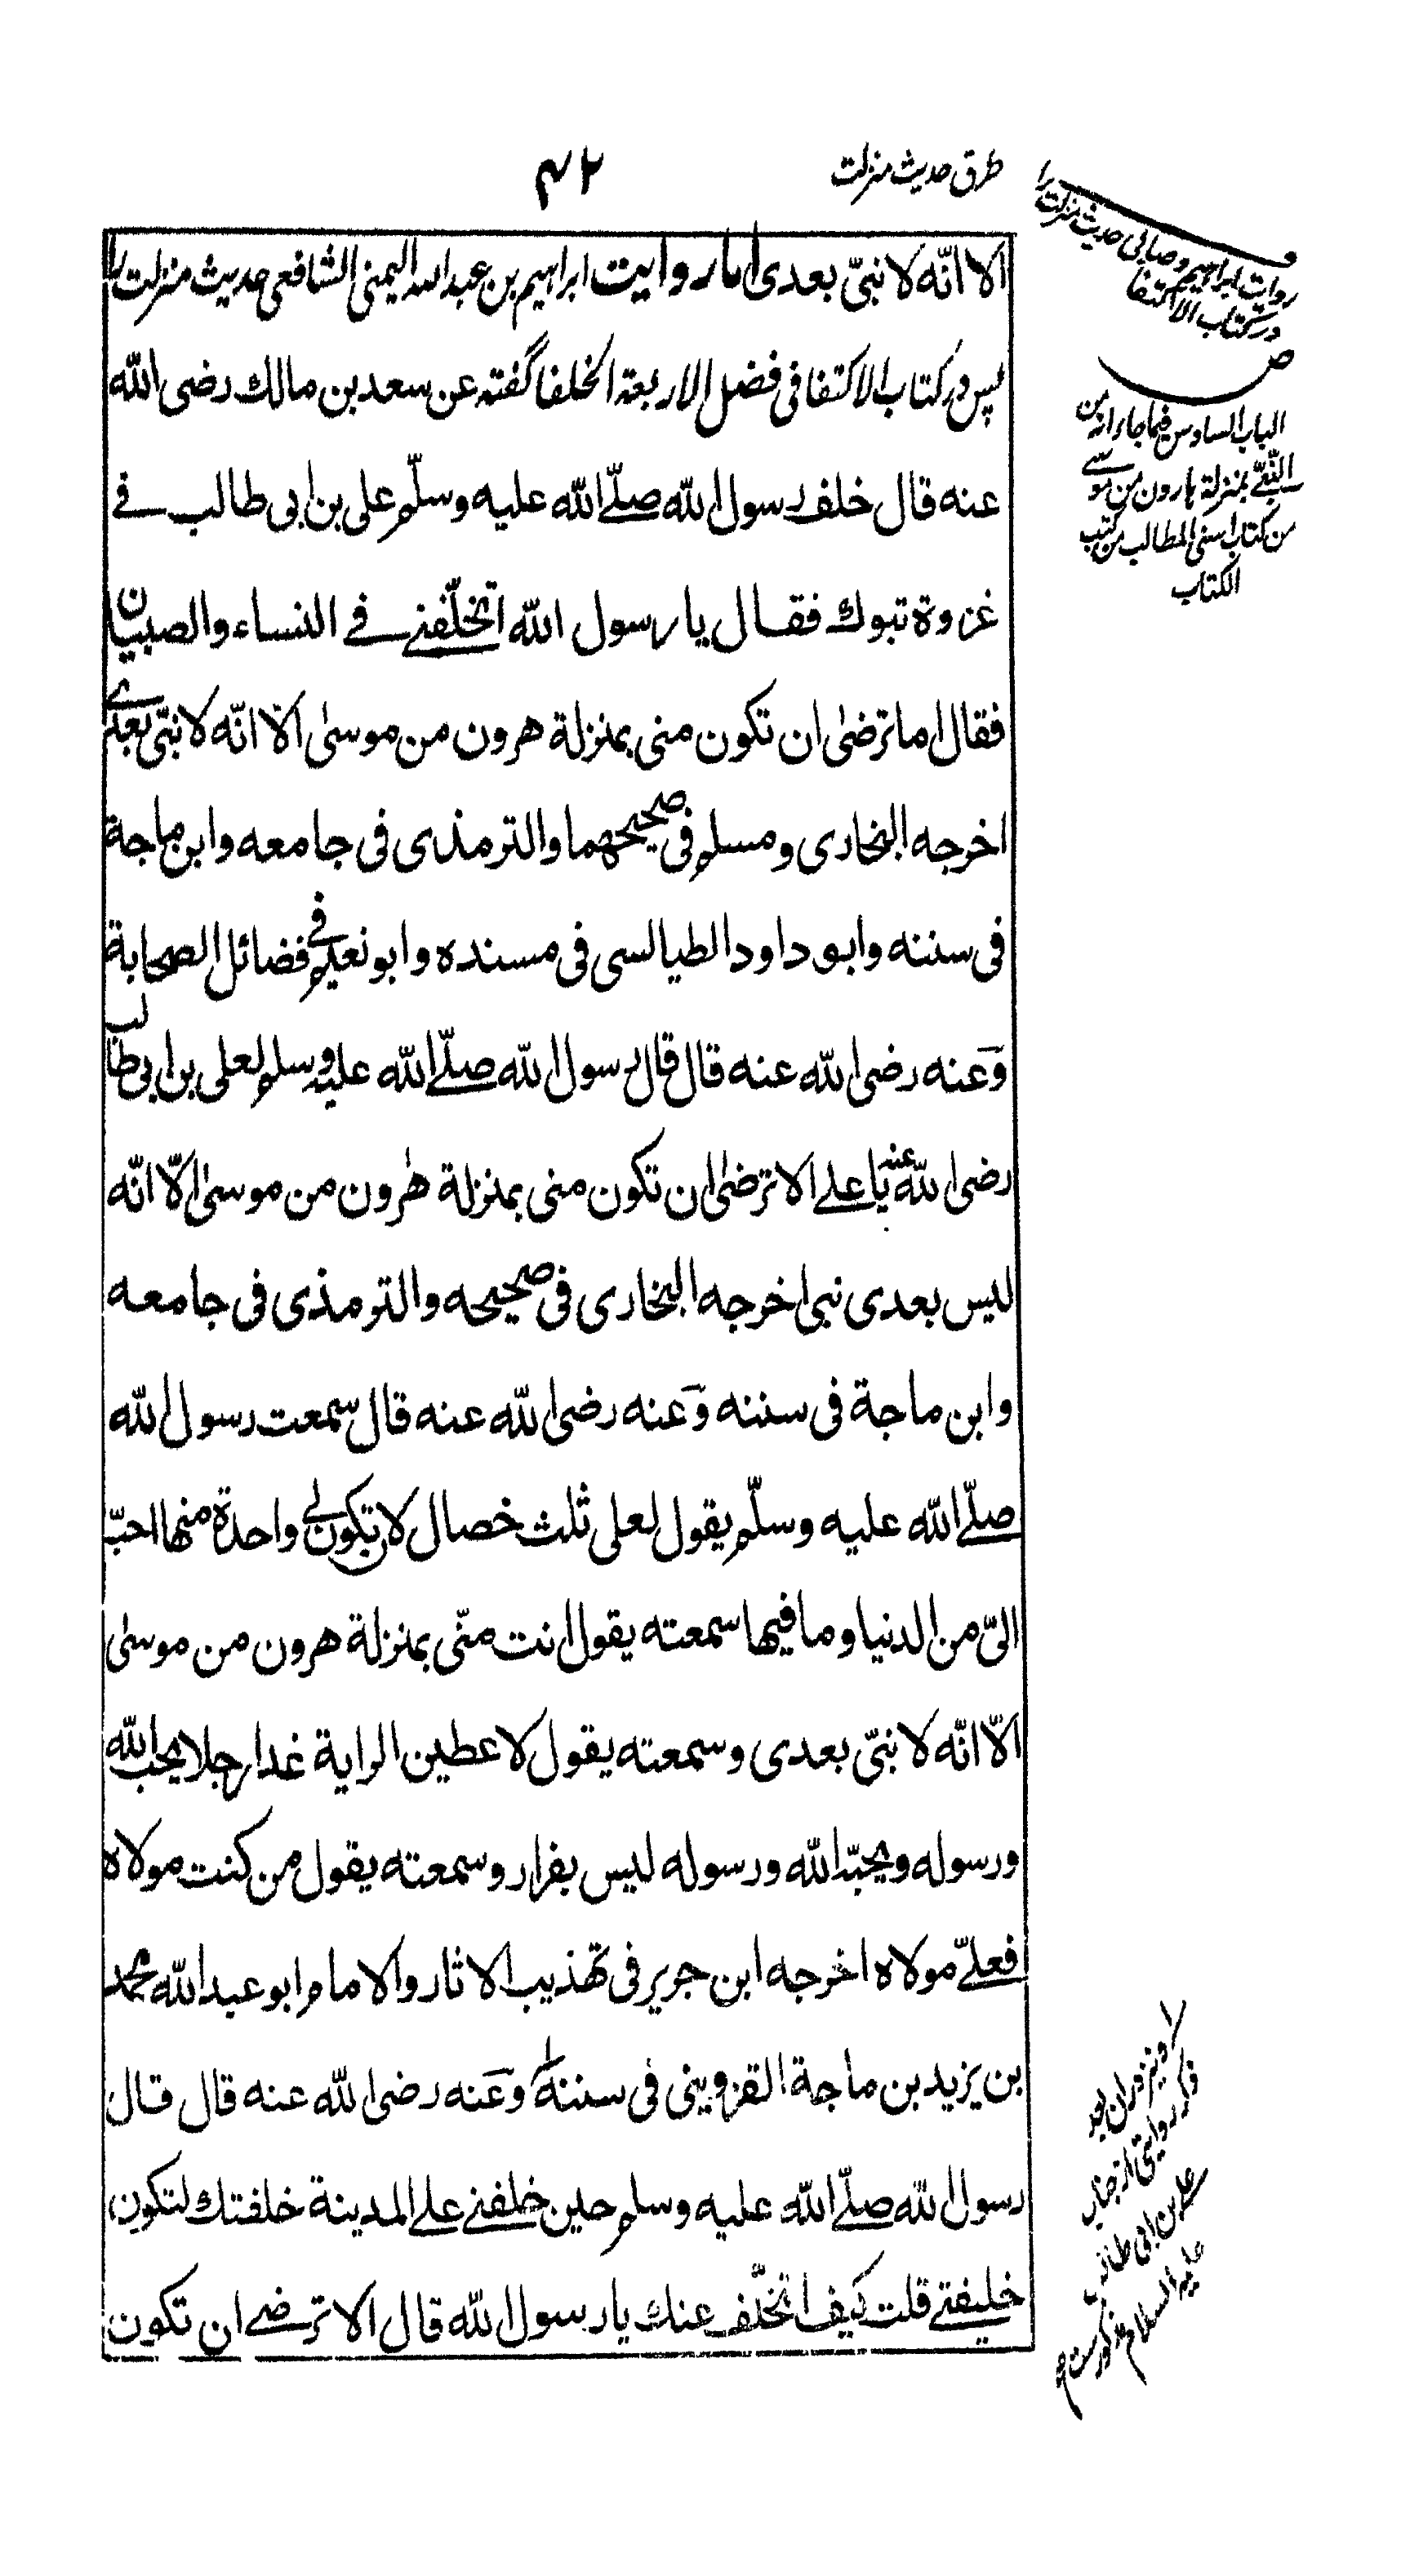 طرق حدیث منزلت
۴۲
الا انّه لا نبیّ بعدی اما روایت ابراهیم بن عبد الله الیمنی الشافعی حدیث منزلت را
پس در کتاب الاکتفا فی فضل الاربعة الخلفا گفته عن سعد بن مالك رضی الله
عنه قال خلف رسول الله صلّے الله علیه وسلّم علی بن ابی طالب فے
غزوة تبوك فقال یا رسول الله اتخلّفنے فے النساء والصبیان
فقال اما ترضٰی ان تکون منی بمنزلة هرون من موسٰی الا انّه لا نبیّ بعدے
اخرجه البخاری ومسلم فی صحیحهما والترمذی فی جامعه وابن ماجة
فی سننه وابو داود الطیالسی فی مسنده وابو نعیم فے فضائل الصحابة
وَعنه رضی الله عنه قال قال رسول الله صلّے الله علیه وسلم لعلی بن ابی طالب
رضی الله عنه یا علے الا ترضٰی ان تکون منی بمنزلة هٰرون من موسٰی الّا انّه
لیس بعدی نبی اخرجه البخاری فی صحیحه والترمذی فی جامعه
وابن ماجة فی سننه وَعنه رضی الله عنه قال سمعت رسول الله
صلّے الله علیه وسلّم یقول لعلی ثلث خصال لان تکون لے واحدة منها احبّ
الیّ من الدنیا وما فیها سمعته یقول انت منّی بمنزلة هرون من موسٰی
الّا انّه لا نبیّ بعدی وسمعته یقول لاعطین الرایة غدا رجلا یحب الله
ورسوله ویحبّه الله ورسوله لیس بفرار وسمعته یقول من کنت مولاه
فعلےّ مولاه اخرجه ابن جریر فی تهذیب الاثار والامام ابو عبد الله محمد
بن یزید بن ماجة القزوینی فی سننه وَعنه رضی الله عنه قال قال
رسول الله صلّے الله علیه وسلم حین خلفنے علے المدینة خلفتك لتکون
خلیفتے قلت کیف اتخلّف عنك یا رسول الله قال الا ترضے ان تکون
روایت ابراهیم وصابی حدیث منزلت را
در کتاب الاکتفا
الباب السادس فیما جاء انه من
النّبےّ بمنزلة هارون من موسے
من کتاب اسنی المطالب من کتب
الکتاب
ونیز دران بعد
ذکر روایتی از جناب
علے بن ابی طالب
علیه السلام مذکورست